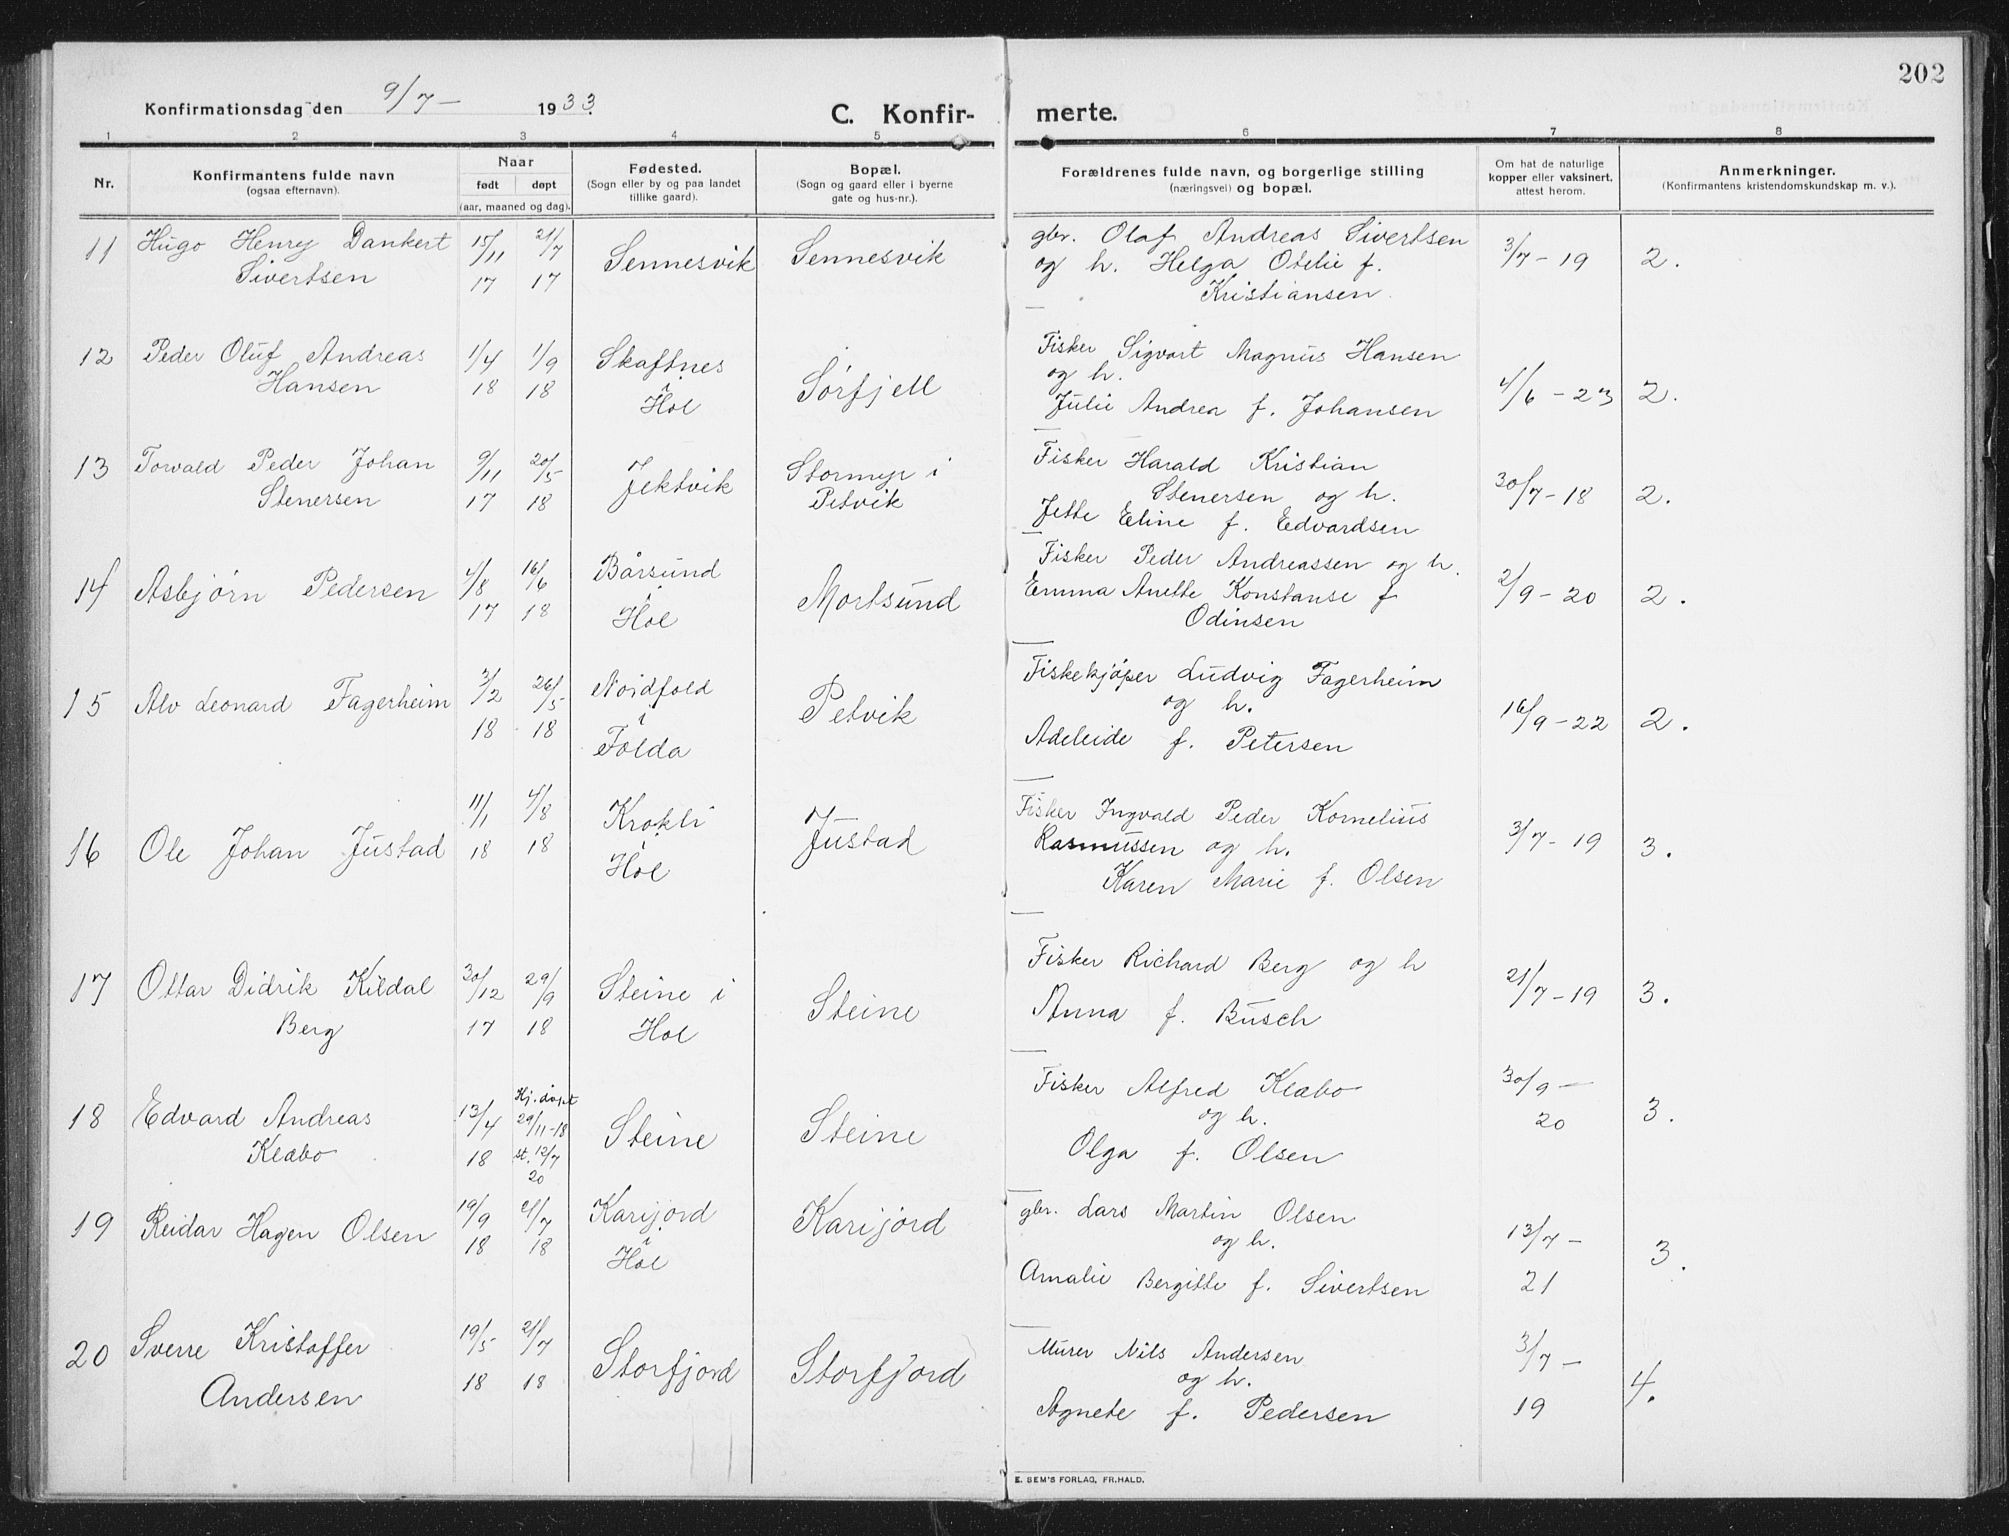 202
Konfirmationsdag den 9/7 - 1933.
C. Konfir-
merte.
1 2 3 4 5 6 7 8
Nr.
Konfirmantens fulde navn
(ogsaa efternavn).
Naar
født døpt
(aar, maaned og dag).
Fødested.
(Sogn eller by og paa landet
tillike gaard).
Bopæl.
(Sogn og gaard eller i byerne
gate og hus-nr.).
Forældrenes fulde navn, og borgerlige stilling
(næringsvei) og bopæl.
Om hat de naturlige
kopper eller vaksinert,
attest herom.
Anmerkninger.
(Konfirmantens kristendomskundskap m. v.).
11 Hugo Henry Dankert 15/11 21/7 Sennesvik Sennesvik gbr. Olaf Andreas Sivertsen 3/7-19 2.
Sivertsen 17 17 og h. Helga Otelie f.
Kristiansen
12 Peder Oluf Andreas 1/4 1/9 Skaftnes Sørfjell Fisker Sigvart Magnus Hansen 4/6-23 2.
Hansen 18 18 i og h.
Hol Julie Andrea f. Johansen
13 Torvald Peder Johan 9/11 20/5 Jektvik Stormyr i Fisker Harald Kristian 30/7-18 2.
Stenersen 17 18 Petvik Stenersen og h.
Jette Eline f. Edvardsen
14 Asbjørn Pedersen 4/8 16/6 Bårsund Mortsund Fisker Peder Andreassen og h. 2/9-20 2.
17 18 i Emma Anette Konstanse f
Hol Odinsen
15 Alv Leonard Fagerheim 3/2 26/5 Nordfold Petvik Fiskekjøper Ludvig Fagerheim 16/9-22 2.
18 18 i og h.
Folda Adeleide f. Petersen
16 Ole Johan Justad 11/1 4/8 Krokli Justad Fisker Ingvald Peder Kornelius 3/7-19 3.
18 18 i Rasmussen og h.
Hol Karen Marie f. Olsen
17 Ottar Didrik Kildal 30/12 29/9 Steine i Steine Fisker Richard Berg og h 21/7-19 3.
Berg 17 18 Hol Anna f. Busch
18 Edvard Andreas 13/4 Hj.døpt Steine Steine Fisker Alfred Klæbo 30/9- 3.
Klæbo 18 29/11-18 og h. 20
st. 12/7 Olga f. Olsen
20
19 Reidar Hagen Olsen 19/9 21/7 Karijord Karijord gbr. Lars Martin Olsen 13/7- 3.
18 18 i og h. 21
Hol Amalie Bergitte f. Sivertsen
20 Sverre Kristoffer 19/5 21/7 Storfjord Storfjord Murer Nils Andersen 3/7- 4.
Andersen 18 18 og h. 19
Agnete f. Pedersen
E. SEM'S FORLAG, FR.HALD.